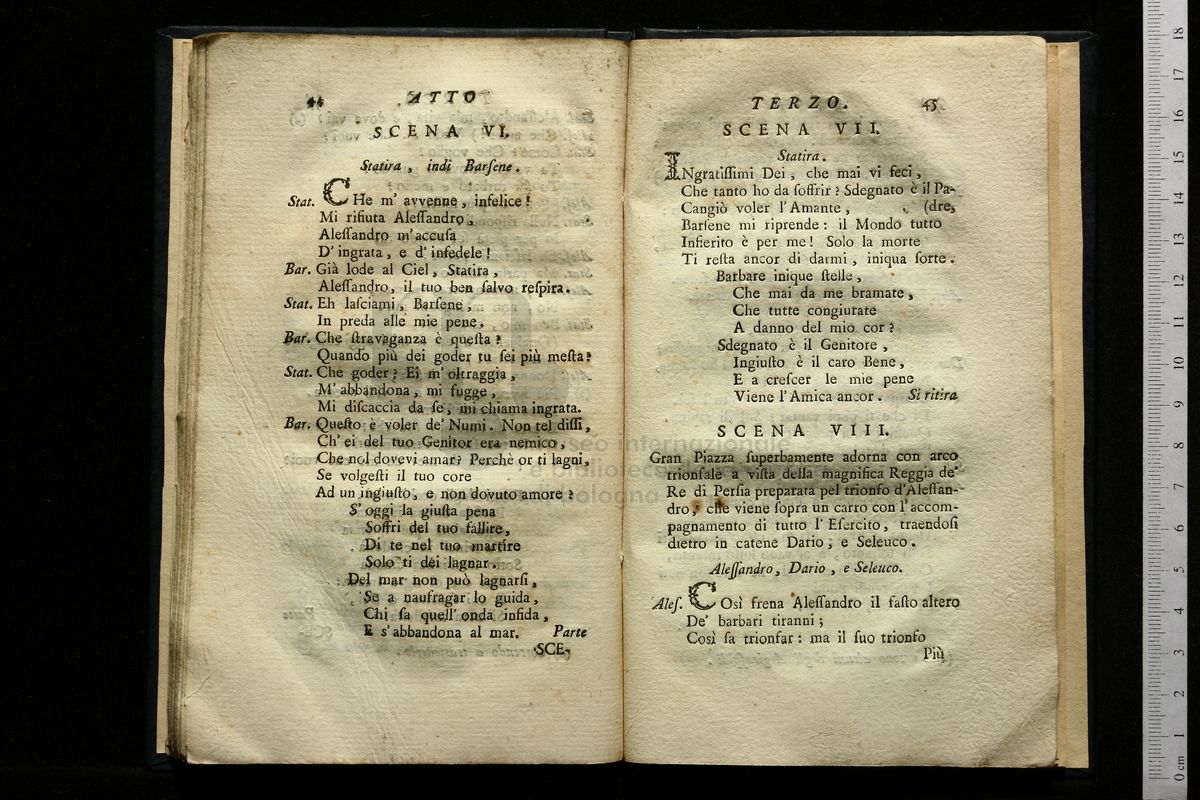 44 ATTO
SCENA VI.
Statira, indi Barſene.
Stat. CHe m' avvenne, infelice!
Mi rifiuta Aleſſandro,
Aleſſandro m'accuſa
D' ingrata, e d' infedele!
Bar. Già lode al Ciel, Statira,
Aleſſandro, il tuo ben ſalvo reſpira.
Stat. Eh laſciami, Barſene,
In preda alle mie pene.
Bar. Che ſtravaganza è queſta?
Quando più dei goder tu ſei più meſta?
Stat. Che goder? Ei m' oltraggia,
M' abbandona, mi fugge,
Mi diſcaccia da ſe, mi chiama ingrata.
Bar. Queſto è voler de' Numi. Non tel diſſi,
Ch' ei del tuo Genitor era nemico,
Che nol dovevi amar? Perchè or ti lagni,
Se volgeſti il tuo core
Ad un ingiuſto, e non dovuto amore?
S' oggi la giuſta pena
Soffri del tuo fallire,
Di te nel tuo martire
Solo ti dei lagnar.
Del mar non può lagnarſi,
Se a naufragar lo guida,
Chi ſa quell' onda infida,
E s' abbandona al mar. Parte
SCE-
TERZO. 45
SCENA VII.
Statira.
INgratiſſimi Dei, che mai vi feci,
Che tanto ho da ſoffrir? Sdegnato è il Pa-
Cangiò voler l'Amante, (dre,
Barſene mi riprende: il Mondo tutto
Infierito è per me! Solo la morte
Ti reſta ancor di darmi, iniqua ſorte.
Barbare inique ſtelle,
Che mai da me bramate,
Che tutte congiurate
A danno del mio cor?
Sdegnato è il Genitore,
Ingiuſto è il caro Bene,
E a creſcer le mie pene
Viene l'Amica ancor. Si ritira
SCENA VIII.
Gran Piazza ſuperbamente adorna con arco
trionfale a viſta della magnifica Reggia de'
Re di Perſia preparata pel trionfo d'Aleſſan-
dro, che viene ſopra un carro con l'accom-
pagnamento di tutto l' Eſercito, traendoſi
dietro in catene Dario, e Seleuco.
Aleſſandro, Dario, e Seleuco.
Aleſ. COsì frena Aleſſandro il faſto altero
De' barbari tiranni;
Così fa trionfar: ma il ſuo trionfo
Più